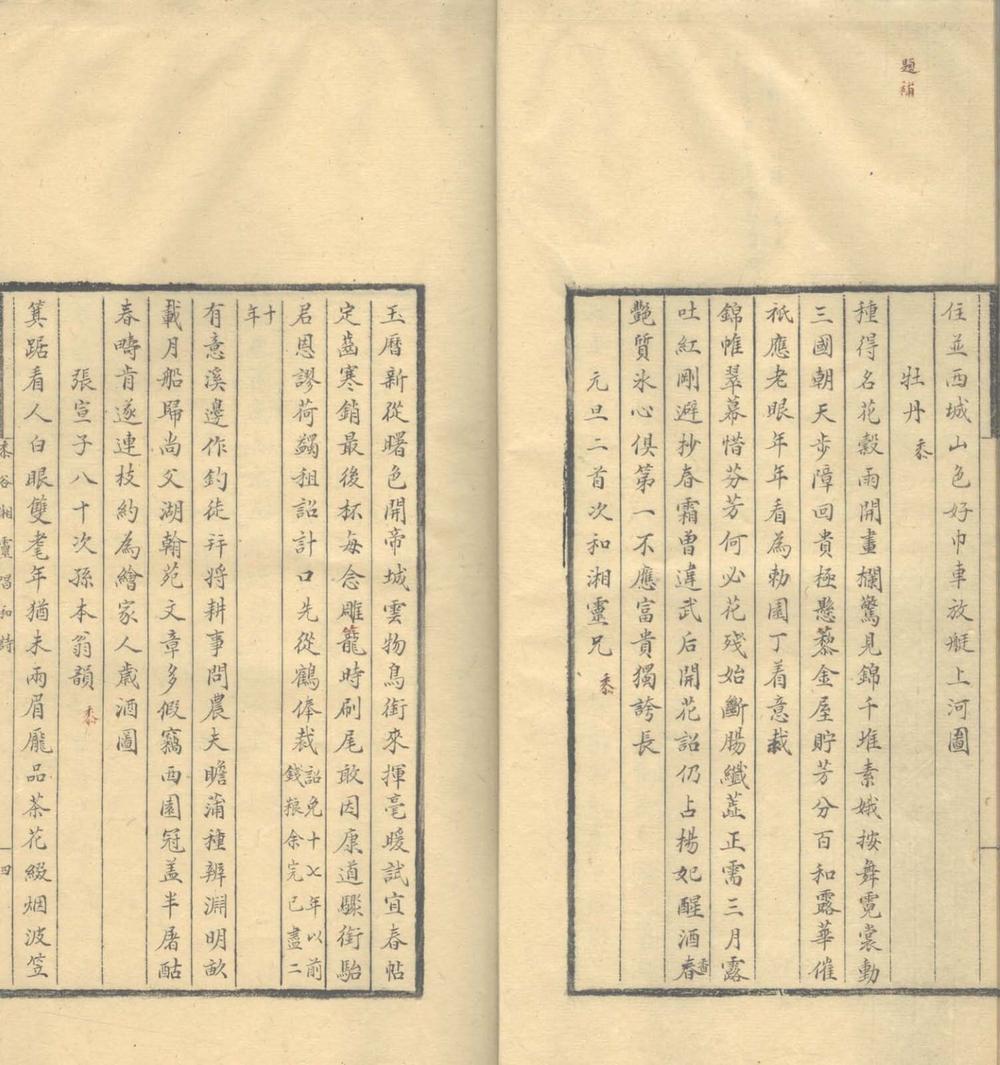 題補
住並西城山色好巾車放艇上河圖
牡丹 黍
種得名花穀雨開畫欄驚見錦千堆素娥按舞霓裳動
三國朝天步障回貴極懸藜金屋貯芳分百和露華催
祇應老眼年年看為勅園丁着意栽
錦帷翠幕惜芬芳何必花殘始斷腸纖蓝正需三月露
吐紅剛避抄春霜曾違武后開花詔仍占楊妃醒酒春香
艷質氷心俱第一不應富貴獨誇長
元旦二首次和湘靈兄 黍
玉曆新從曙色開帝城雲物鳥銜來揮毫暖試宜春帖
定齒寒銷最後杯每念雕籠時刷尾敢因康道驟銜駘
君恩謬荷蠲租詔計口先從鶴俸裁詔免十七年以前錢粮余完已盡二
十年
有意溪邊作釣徒幷將耕事問農夫瞻蒲種辨淵明畝
載月船歸尚父湖翰苑文章多假竊西園冠盖半屠酤
春疇肯遂連枝約為繪家人歲酒圖
張宣子八十次孫本翁韻 黍
箕踞看人白眼雙耄年猶未兩眉厖品茶花綴烟波笠
黍谷湘靈唱和詩 四